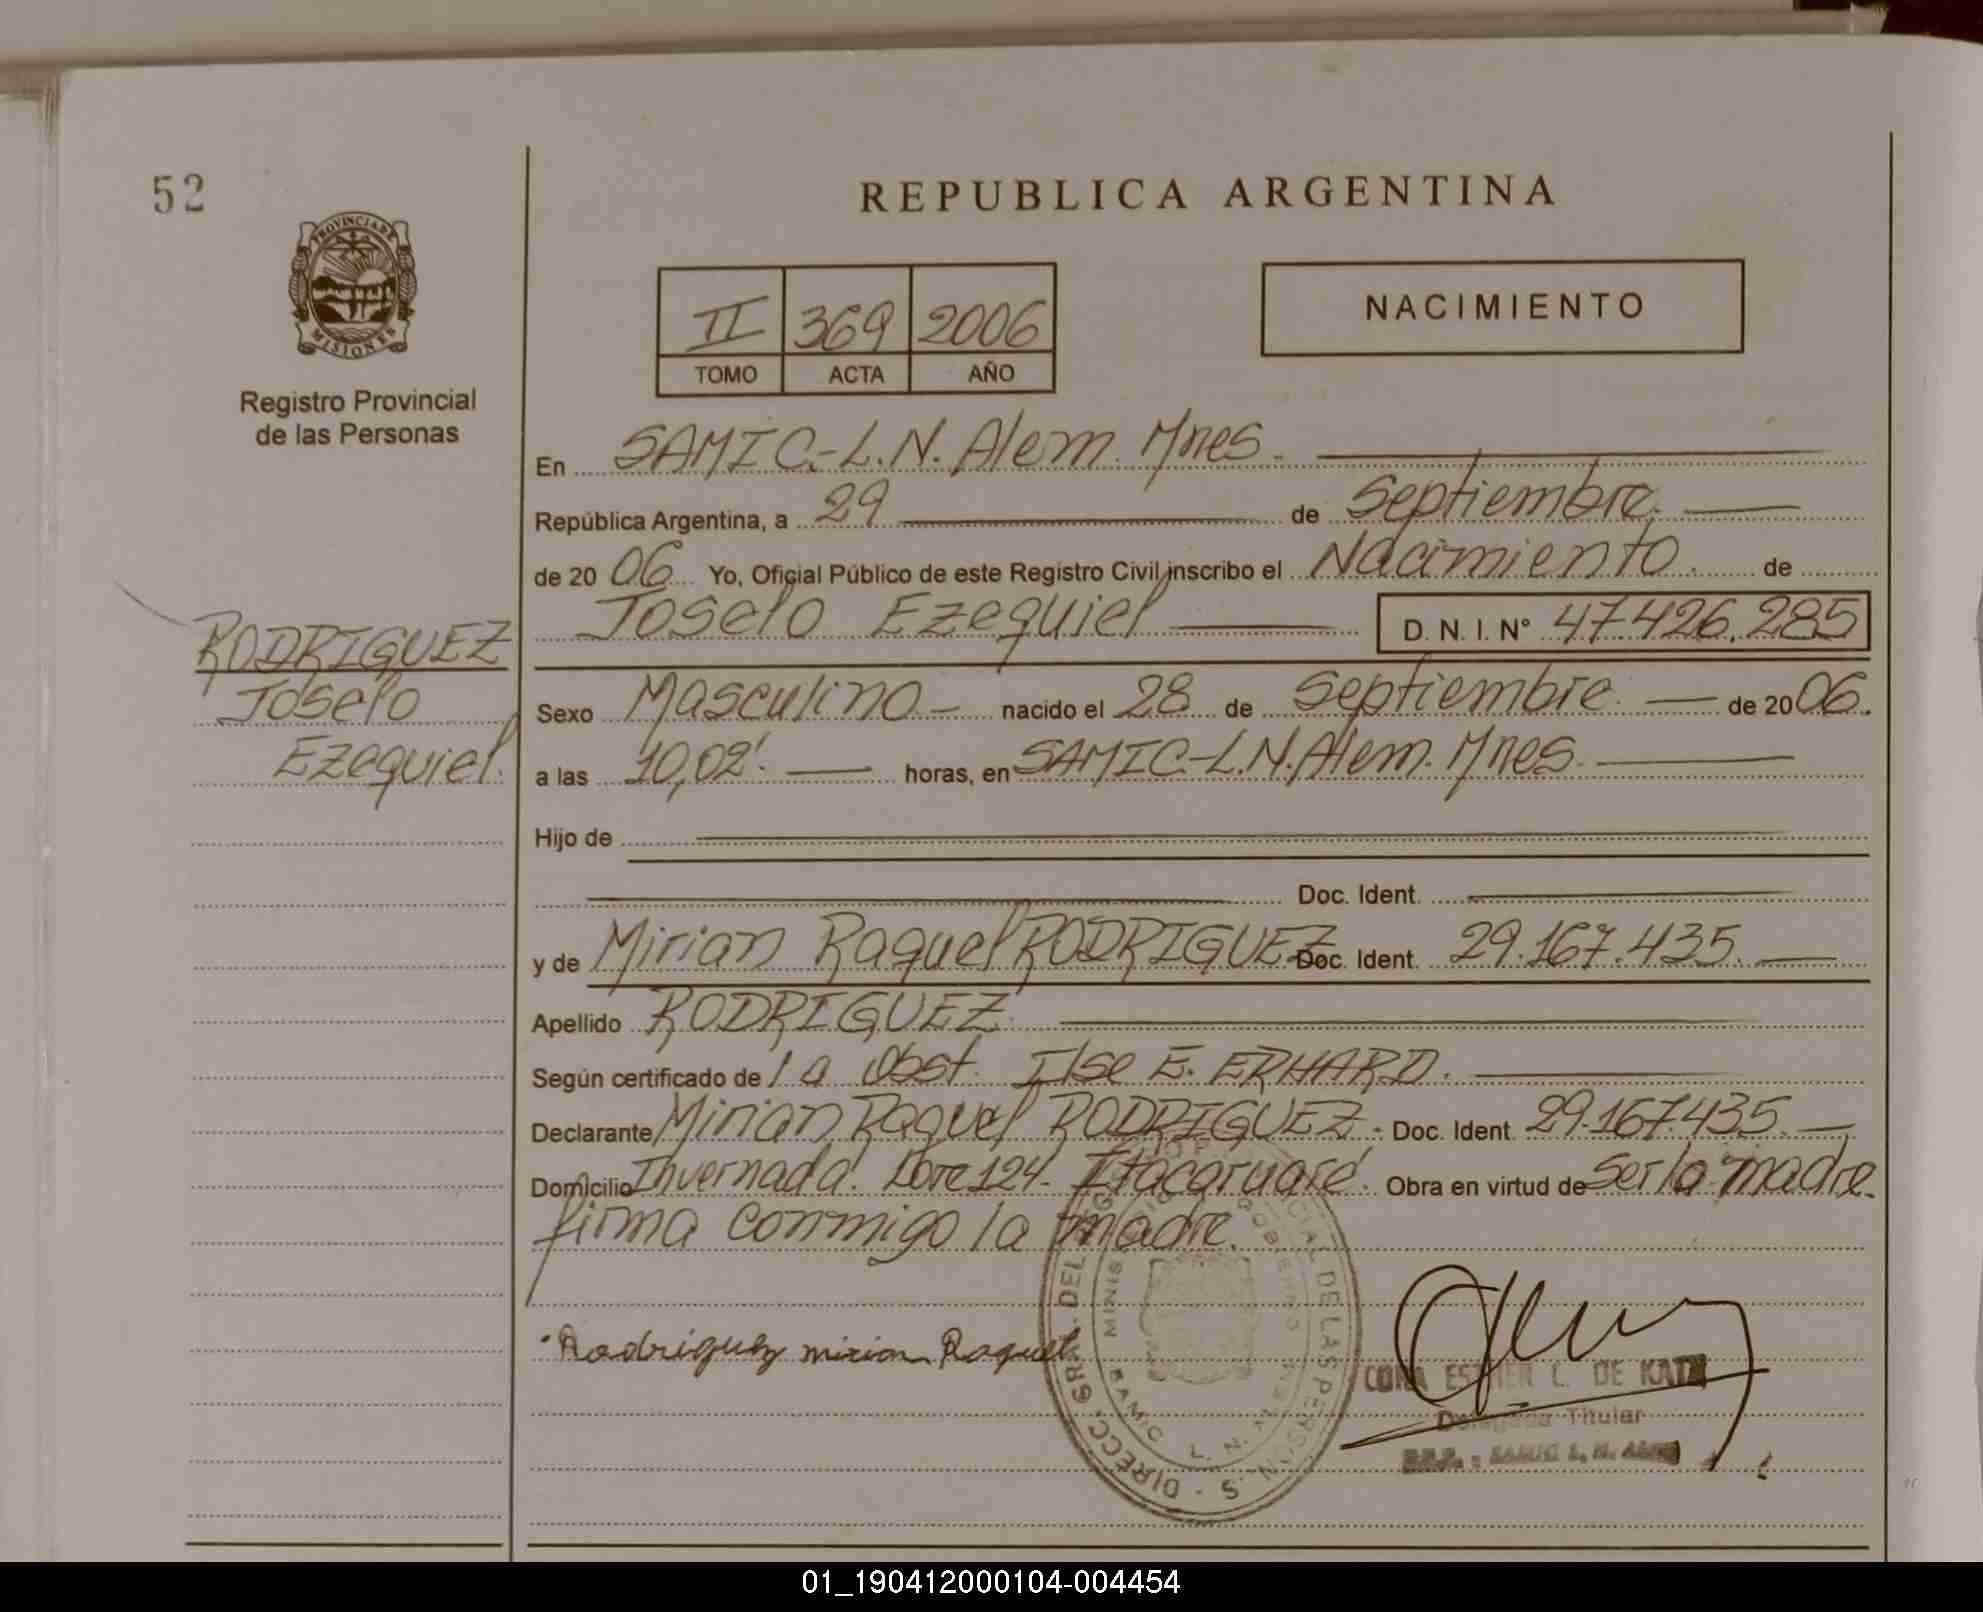 52
REPUBLICA ARGENTINA
PROVINCIA DE
MISIONES
Registro Provincial
de las Personas
II 369 2006
TOMO ACTA AÑO
NACIMIENTO
En SAMIC.-L.N. Alem. Mnes.
República Argentina, a 29 de Septiembre.
de 20 06 Yo, Oficial Público de este Registro Civil inscribo el Nacimiento. de
Joselo Ezequiel D. N. I. N° 47.426.285
RODRIGUEZ
Joselo
Ezequiel.
Sexo Masculino - nacido el 28 de Septiembre. de 20 06.
a las 10,02'. horas, en SAMIC-L.N. Alem. Mnes.
Hijo de
Doc. Ident.
y de Mirian Raquel RODRIGUEZ Doc. Ident. 29.167.435.
Apellido RODRIGUEZ.
Según certificado de la Obst. Ilse E. ERHARD.
Declarante Mirian Raquel RODRIGUEZ. Doc. Ident. 29.167.435.
Domicilio Invernada. Lote 124. Itacaruaré. Obra en virtud de ser la madre.
firma conmigo la madre.
Rodriguez mirian Raquel
DIRECC. GRAL. DEL CIAL DE LAS PERSONAS
MINIS GOBIERNO
SAMIC L. N. ALEM
CORA ESTHER L. DE KATZ
Delegada Titular
R.P.P. - SAMIC L. N. ALEM
01_190412000104-004454